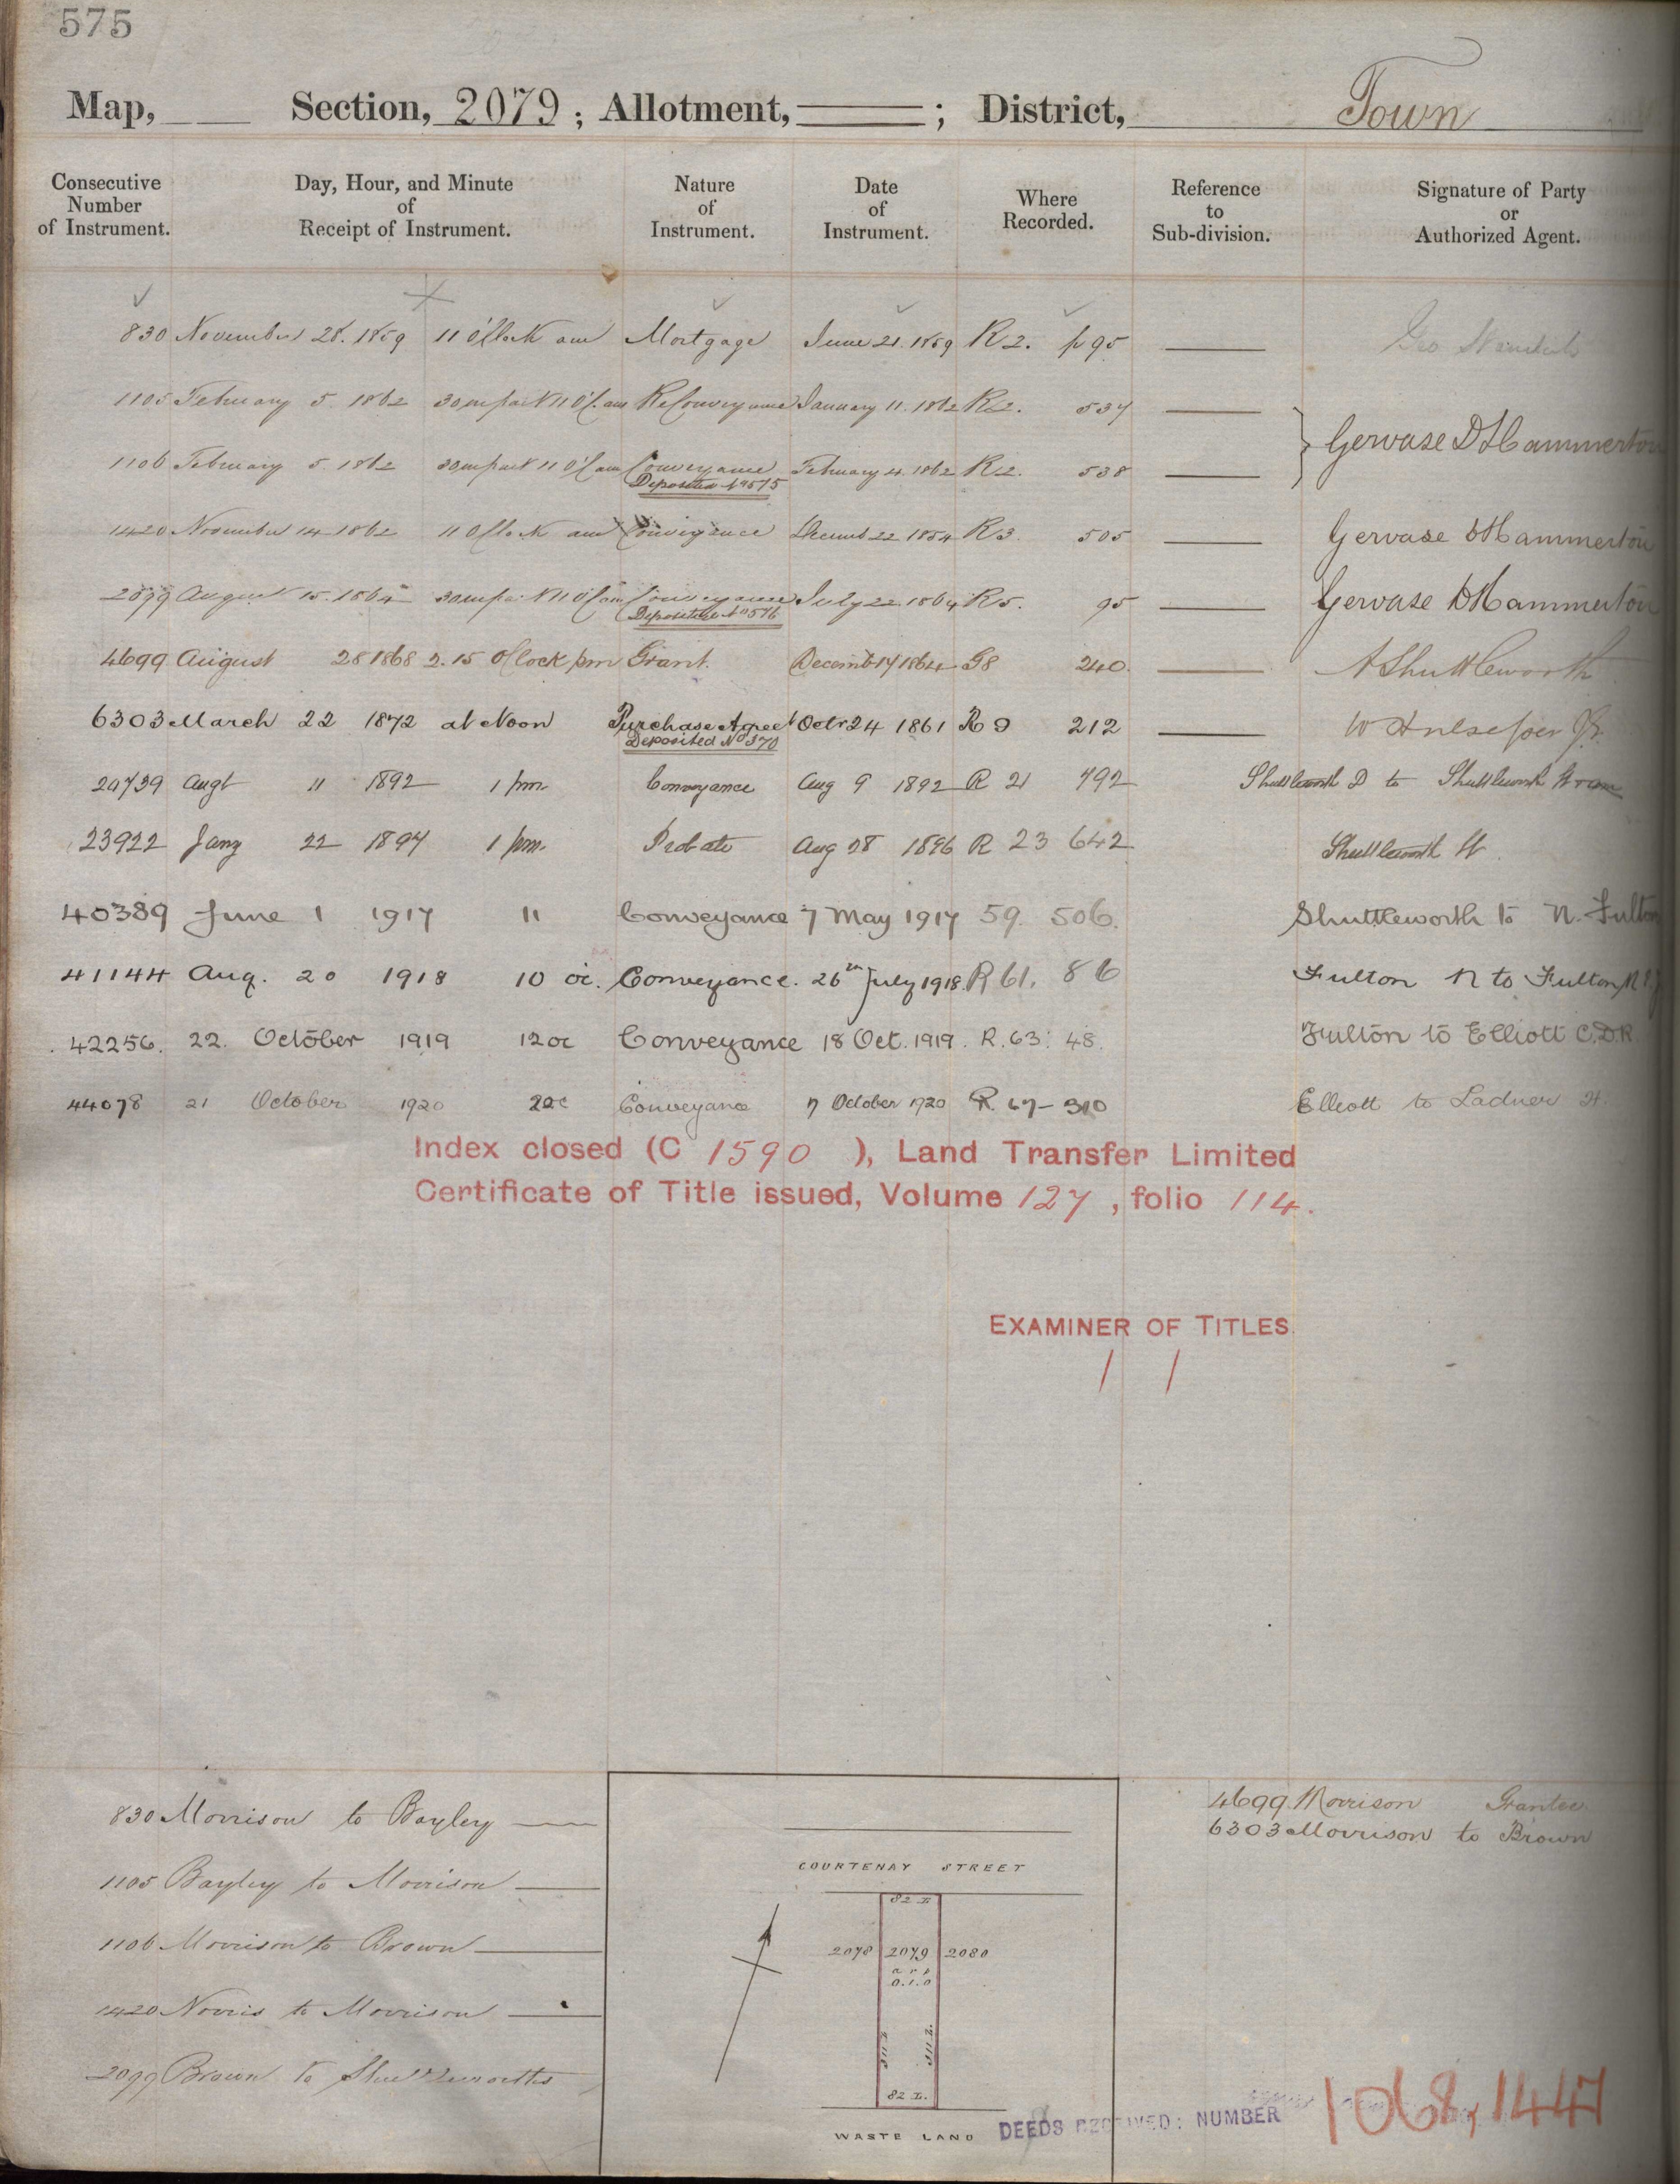 575
Map, Section, 2079 ; Allotment, ; District, Town
Consecutive Number of Instrument.
Day, Hour, and Minute of Receipt of Instrument.
Nature of Instrument.
Date of Instrument.
Where Recorded.
Reference to Sub-division.
Signature of Party or Authorized Agent.
830 November 28. 1859 11 O'Clock am Mortgage June 21. 1859 R2. p 95 Geo
1105 February 5 1862 30 m past 11 O'C. am ReConveyance January 11. 1862 R2. 537
Gervase D Hammerton
1106 February 5 1862 30 m past 11 O'C am Conveyance February 4 1862 R2. 538
Deposited No 575
1420 November 14 1862 11 O'Clock am Conveyance Decemb 22 1854 R3. 505 Gervase D Hammerton
2099 August 15. 1864 30 m past 11 O'C am Conveyance July 22. 1864 R5. 95 Gervase D Hammerton
Deposited No 576
4699 August 28 1868 2.15 O'Clock pm Grant. Decemb 17 1864 G8 240. A Shuttleworth
6303 March 22 1872 at Noon Purchase Agreet Octr 24 1861 R 9 212 W
Deposited No 370
20739 Augt 11 1892 1 pm Conveyance Aug 9 1892 R 21 792 Shuttleworth D to Shuttleworth
23922 Jany 22 1897 1 pm. Probate Aug 28 1896 R 23 642 Shuttleworth W.
40389 June 1 1917 11 Conveyance 7 May 1917 59. 506. Shuttleworth to N. Fulton
41144 Aug. 20 1918 10 oc. Conveyance. 26th July 1918. R 61. 86 Fulton N to Fulton
42256. 22. October 1919 12 oc Conveyance 18 Oct. 1919. R. 63. 48. Fulton to Elliott C.D.R.
44078 21 October 1920 Conveyance 7 October 1920 R 67 - 310 Elliott to Ladner H.
Index closed (C 1590 ), Land Transfer Limited
Certificate of Title issued, Volume 127 , folio 114.
EXAMINER OF TITLES.
/ /
830 Morrison to Bayley
1105 Bayley to Morrison
1106 Morrison to Brown
1420 Norris to Morrison
2099 Brown to Shuttleworth
COURTENAY STREET
82 L
2078 2079 2080
a r p
0.1.0
311 L
311 L.
82 L.
WASTE LAND
4699 Morrison Grantee
6303 Morrison to Brown
DEEDS RECEIVED: NUMBER 1068, 1447